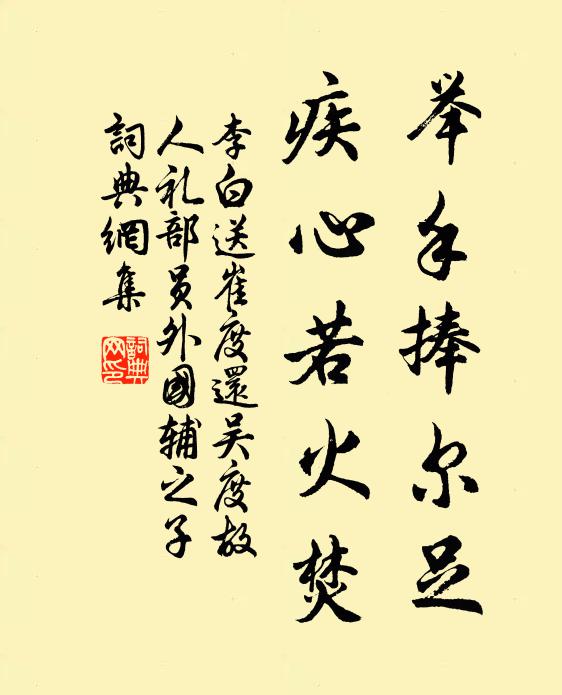 举手捧尔足
疾心若火焚
李白送崔度還吴度故
人礼部员外國辅之子
詞典網集
詞典网印